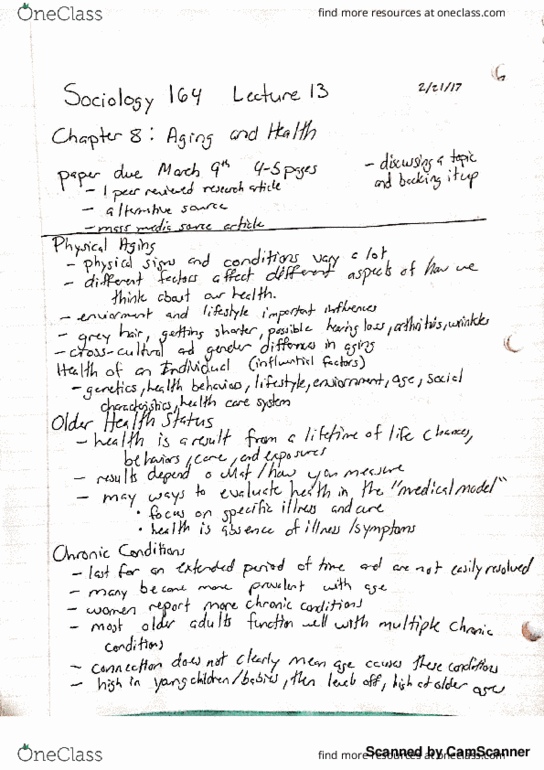 OneClass
find more resources at oneclass.com
2/21/17
Sociology 164 Lecture 13
Chapter 8: Aging and Health
paper due March 9th 4-5 pages
- discussing a topic
and backing it up
- 1 peer reviewed research article
- alternitive source
- mass media source article
Physical Aging
- physical signs and conditions vary a lot
- different factors affect different aspects of how we
think about our health.
- enviorment and lifestyle important influences
- grey hair, getting shorter, possible hearing loss, arthritis, wrinkles
- cross-cultural ad gender differences in aging
Health of an Individual (influential factors)
- genetics, health behaviors, lifestyle, enviornment, age, social
characteristics, health care system
Older Health Status
- health is a result from a lifetime of life chances,
behaviors, care, and exposures
- results depend o what/how you measure
- may ways to evaluate health in the "medical model"
• focus on specific illness and cure
• health is absence of illness/symptoms
Chronic Conditions
- last for an extended period of time and are not easily resolved
- many become more prevelent with age
- women report more chronic conditions
- most older adults function well with multiple chronic
conditions
- connection does not clearly mean age causes these conditions
- high in young children/babies, then levels off, high at older ages
OneClass
find more resources at oneclass.com
Scanned by CamScanner